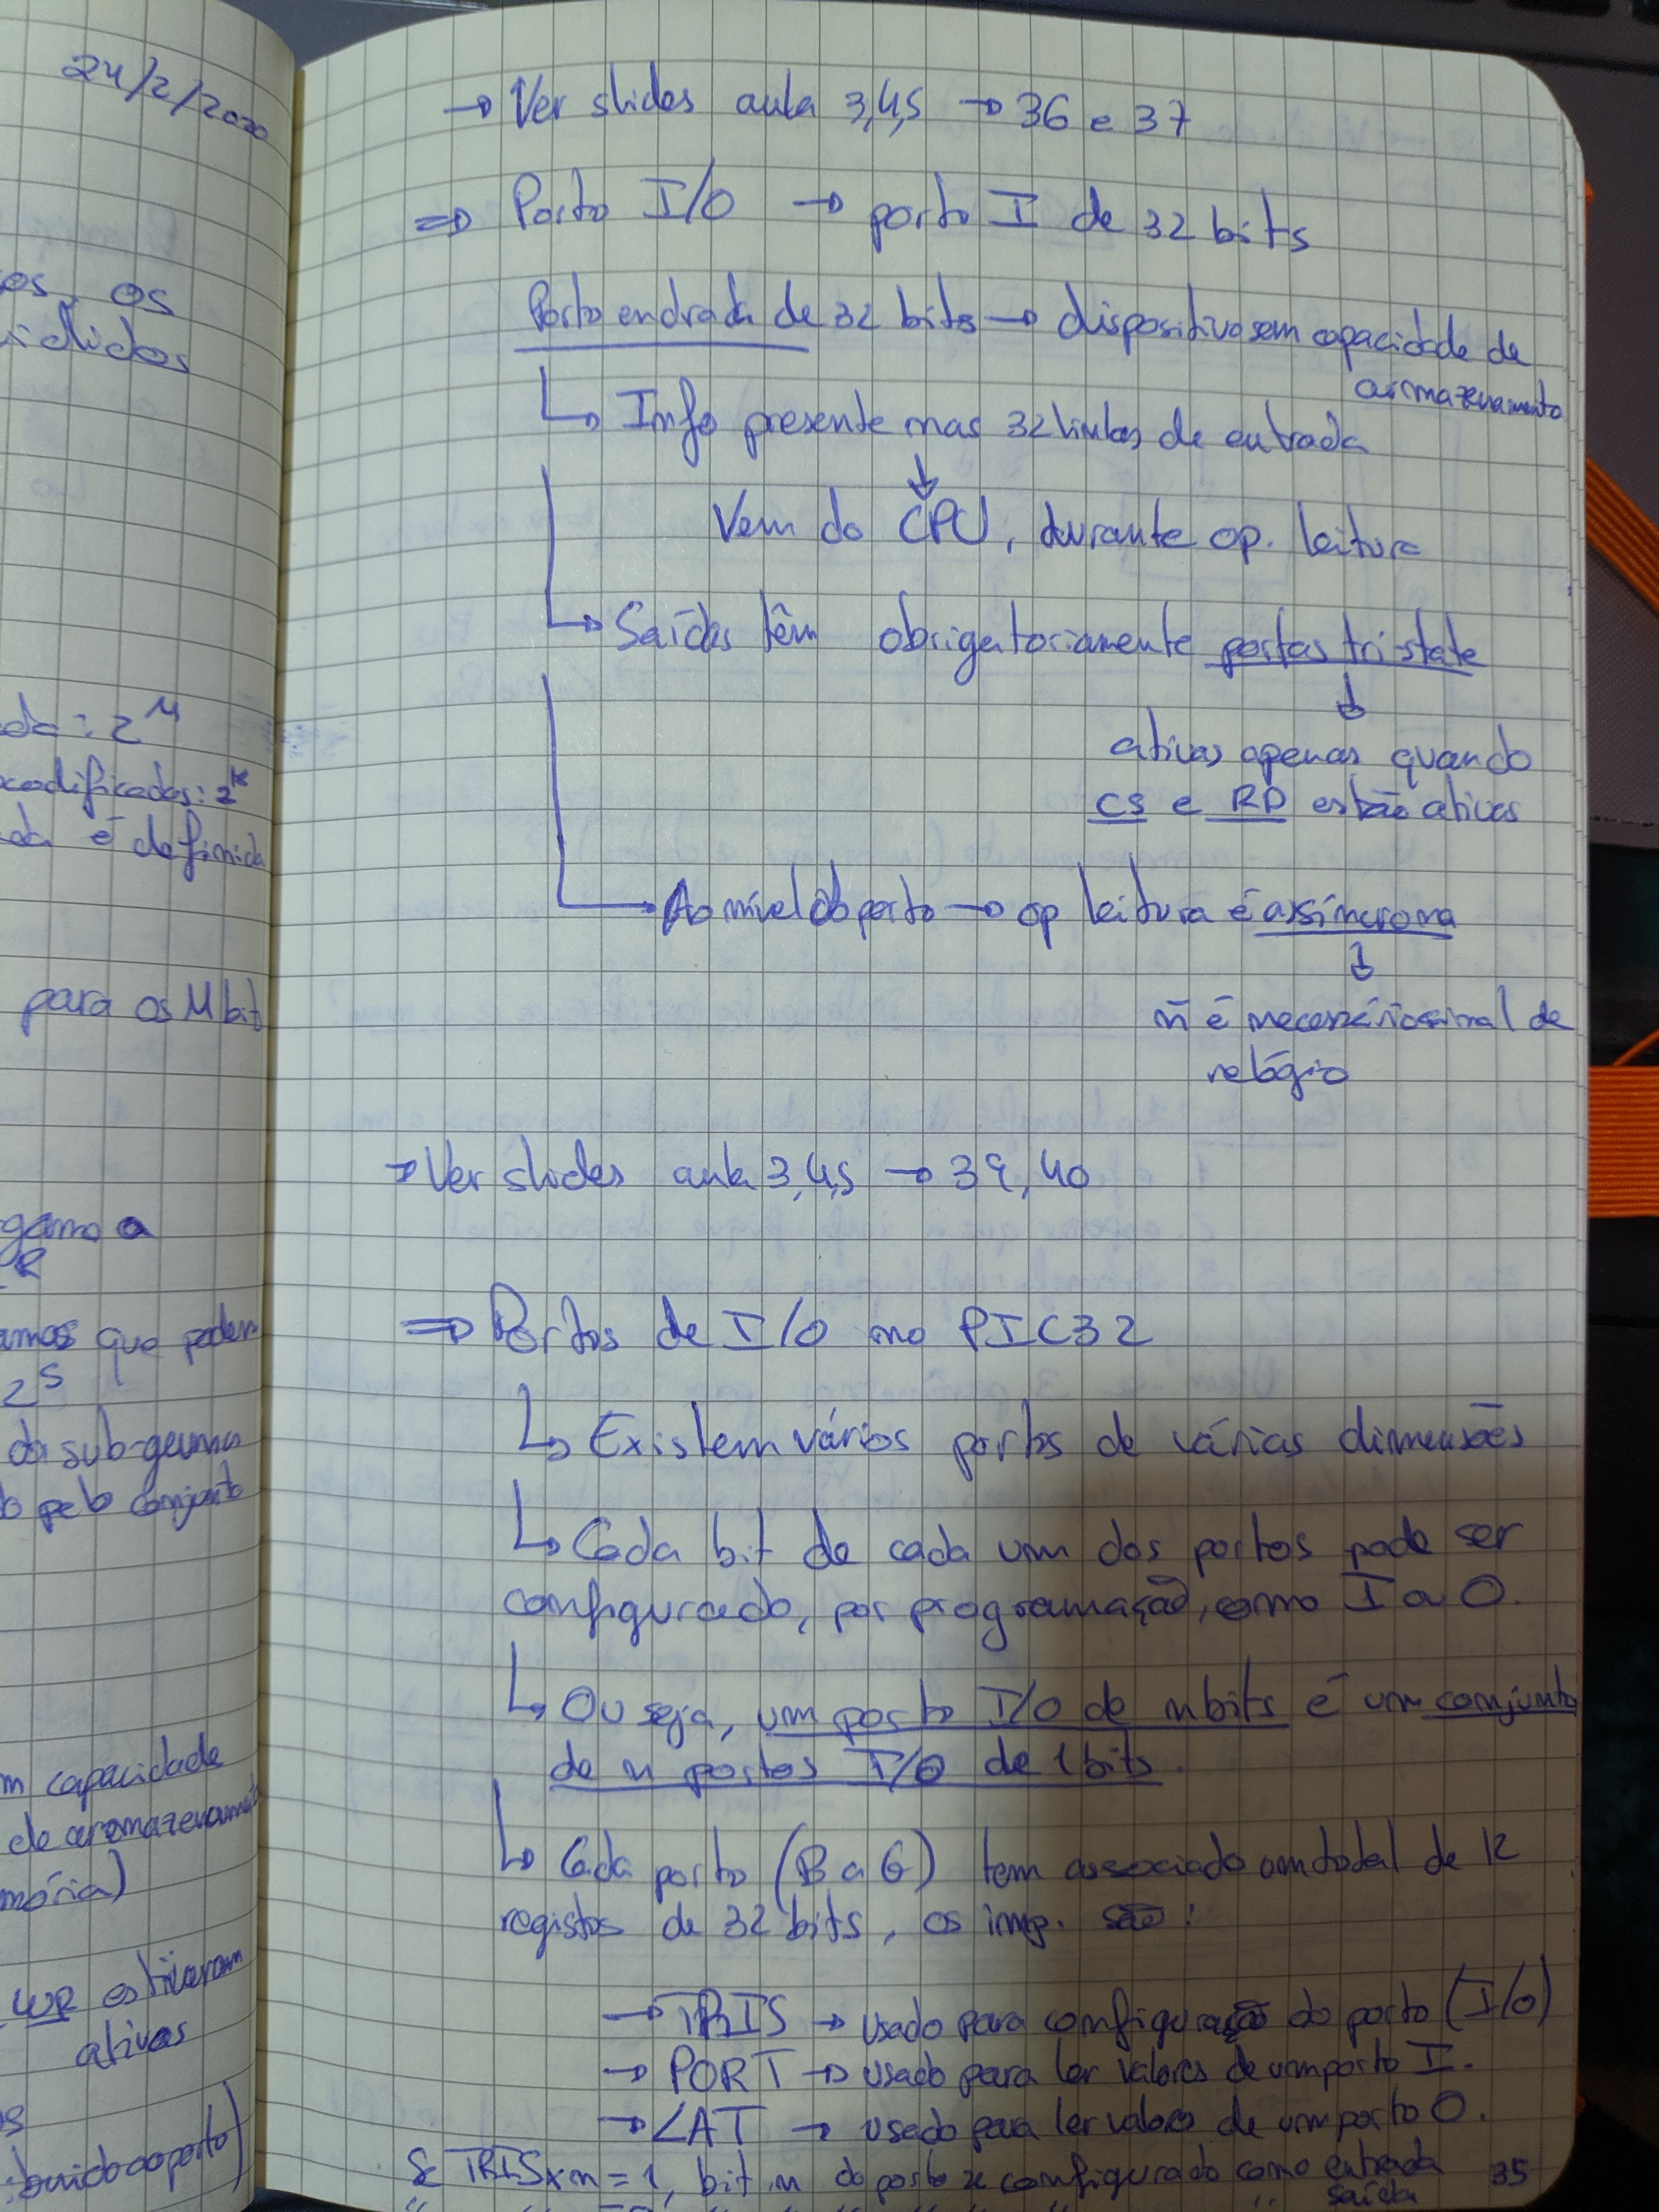 24/2/2020
os, os
didos
da: 2^M
codificados: 2^k
da é definida
para os M bit
gama a
amos que podem
2^S
da sub-gama
o pelo conjunto
m capacidade
de armazenamento
mória)
WR estiverem
ativas
buído ao porto)
→ Ver slides aula 3,4,5 → 36 e 37
⇒ Porto I/O → porto I de 32 bits
Porto endrada de 32 bits → dispositivo sem capacidade de
armazenamento
↳ Info presente nas 32 linhas de entrada
↓
Vem do CPU, durante op. leitura
↳ Saídas têm obrigatoriamente portas tri-state
↓
ativas apenas quando
CS e RD estão ativas
↳ Ao nível do porto → op leitura é assíncrona
↓
ñ é necessário sinal de
relógio
→ Ver slides aula 3,4,5 → 39, 40
⇒ Portos de I/O no PIC32
↳ Existem vários portos de várias dimensões
↳ Cada bit de cada um dos portos pode ser
configurado, por programação, como I ou O.
↳ Ou seja, um porto I/O de n bits é um conjunto
de n portos I/O de 1 bits.
↳ Cada porto (B a G) tem associado um total de 12
registos de 32 bits, os imp. são:
→ TRIS → usado para configuração do porto (I/O)
→ PORT → usado para ler valores de um porto I.
→ LAT → usado para ler valores de um porto O.
Se TRISxn = 1, bit n do porto x configurado como entrada
saída
35